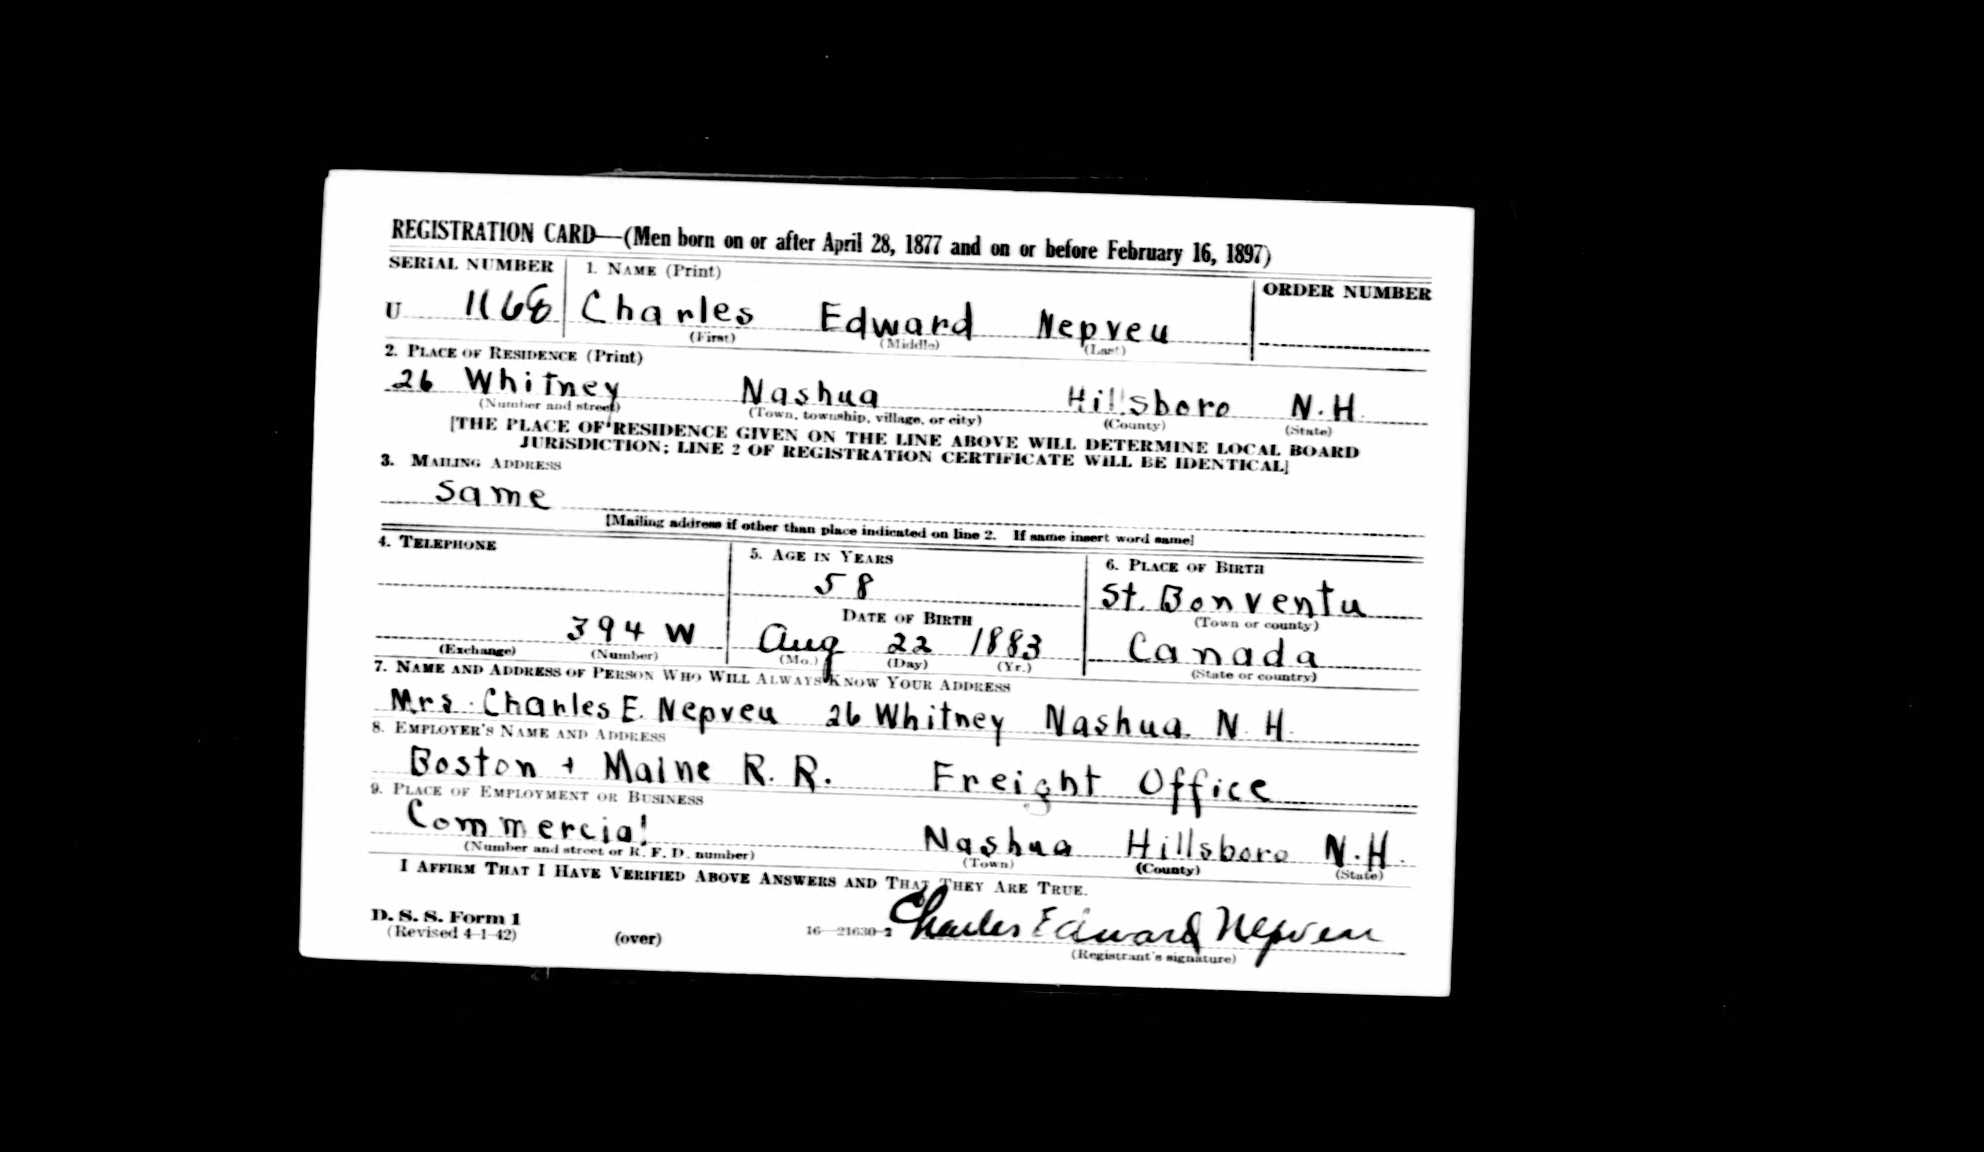 REGISTRATION CARD—(Men born on or after April 28, 1877 and on or before February 16, 1897)
SERIAL NUMBER 1. NAME (Print) ORDER NUMBER
U 1168 Charles Edward Nepveu
(First) (Middle) (Last)
2. PLACE OF RESIDENCE (Print)
26 Whitney Nashua Hillsboro N.H.
(Number and street) (Town, township, village, or city) (County) (State)
[THE PLACE OF RESIDENCE GIVEN ON THE LINE ABOVE WILL DETERMINE LOCAL BOARD
JURISDICTION; LINE 2 OF REGISTRATION CERTIFICATE WILL BE IDENTICAL]
3. MAILING ADDRESS
Same
[Mailing address if other than place indicated on line 2. If same insert word same]
4. TELEPHONE 5. AGE IN YEARS 6. PLACE OF BIRTH
58 St. Bonventu
DATE OF BIRTH (Town or county)
394 W Aug 22 1883 Canada
(Exchange) (Number) (Mo.) (Day) (Yr.) (State or country)
7. NAME AND ADDRESS OF PERSON WHO WILL ALWAYS KNOW YOUR ADDRESS
Mrs. Charles E. Nepveu 26 Whitney Nashua. N. H.
8. EMPLOYER'S NAME AND ADDRESS
Boston + Maine R. R. Freight Office
9. PLACE OF EMPLOYMENT OR BUSINESS
Commercial Nashua Hillsboro N.H.
(Number and street or R. F. D. number) (Town) (County) (State)
I AFFIRM THAT I HAVE VERIFIED ABOVE ANSWERS AND THAT THEY ARE TRUE.
D. S. S. Form 1
(Revised 4-1-42) (over) 16—21630-2 Charles Edward Nepveu
(Registrant's signature)